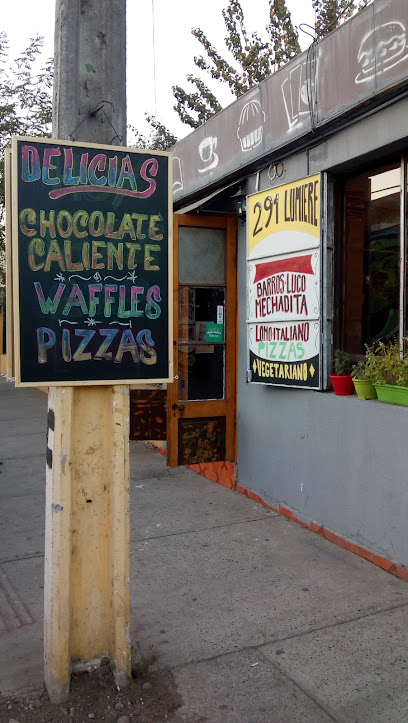 DELICIAS
CHOCOLATE
CALIENTE
WAFFLES
PIZZAS
291 LUMIERE
BARROS-LUCO
MECHADITA
LOMOITALIANO
PIZZAS
VEGETARIANO